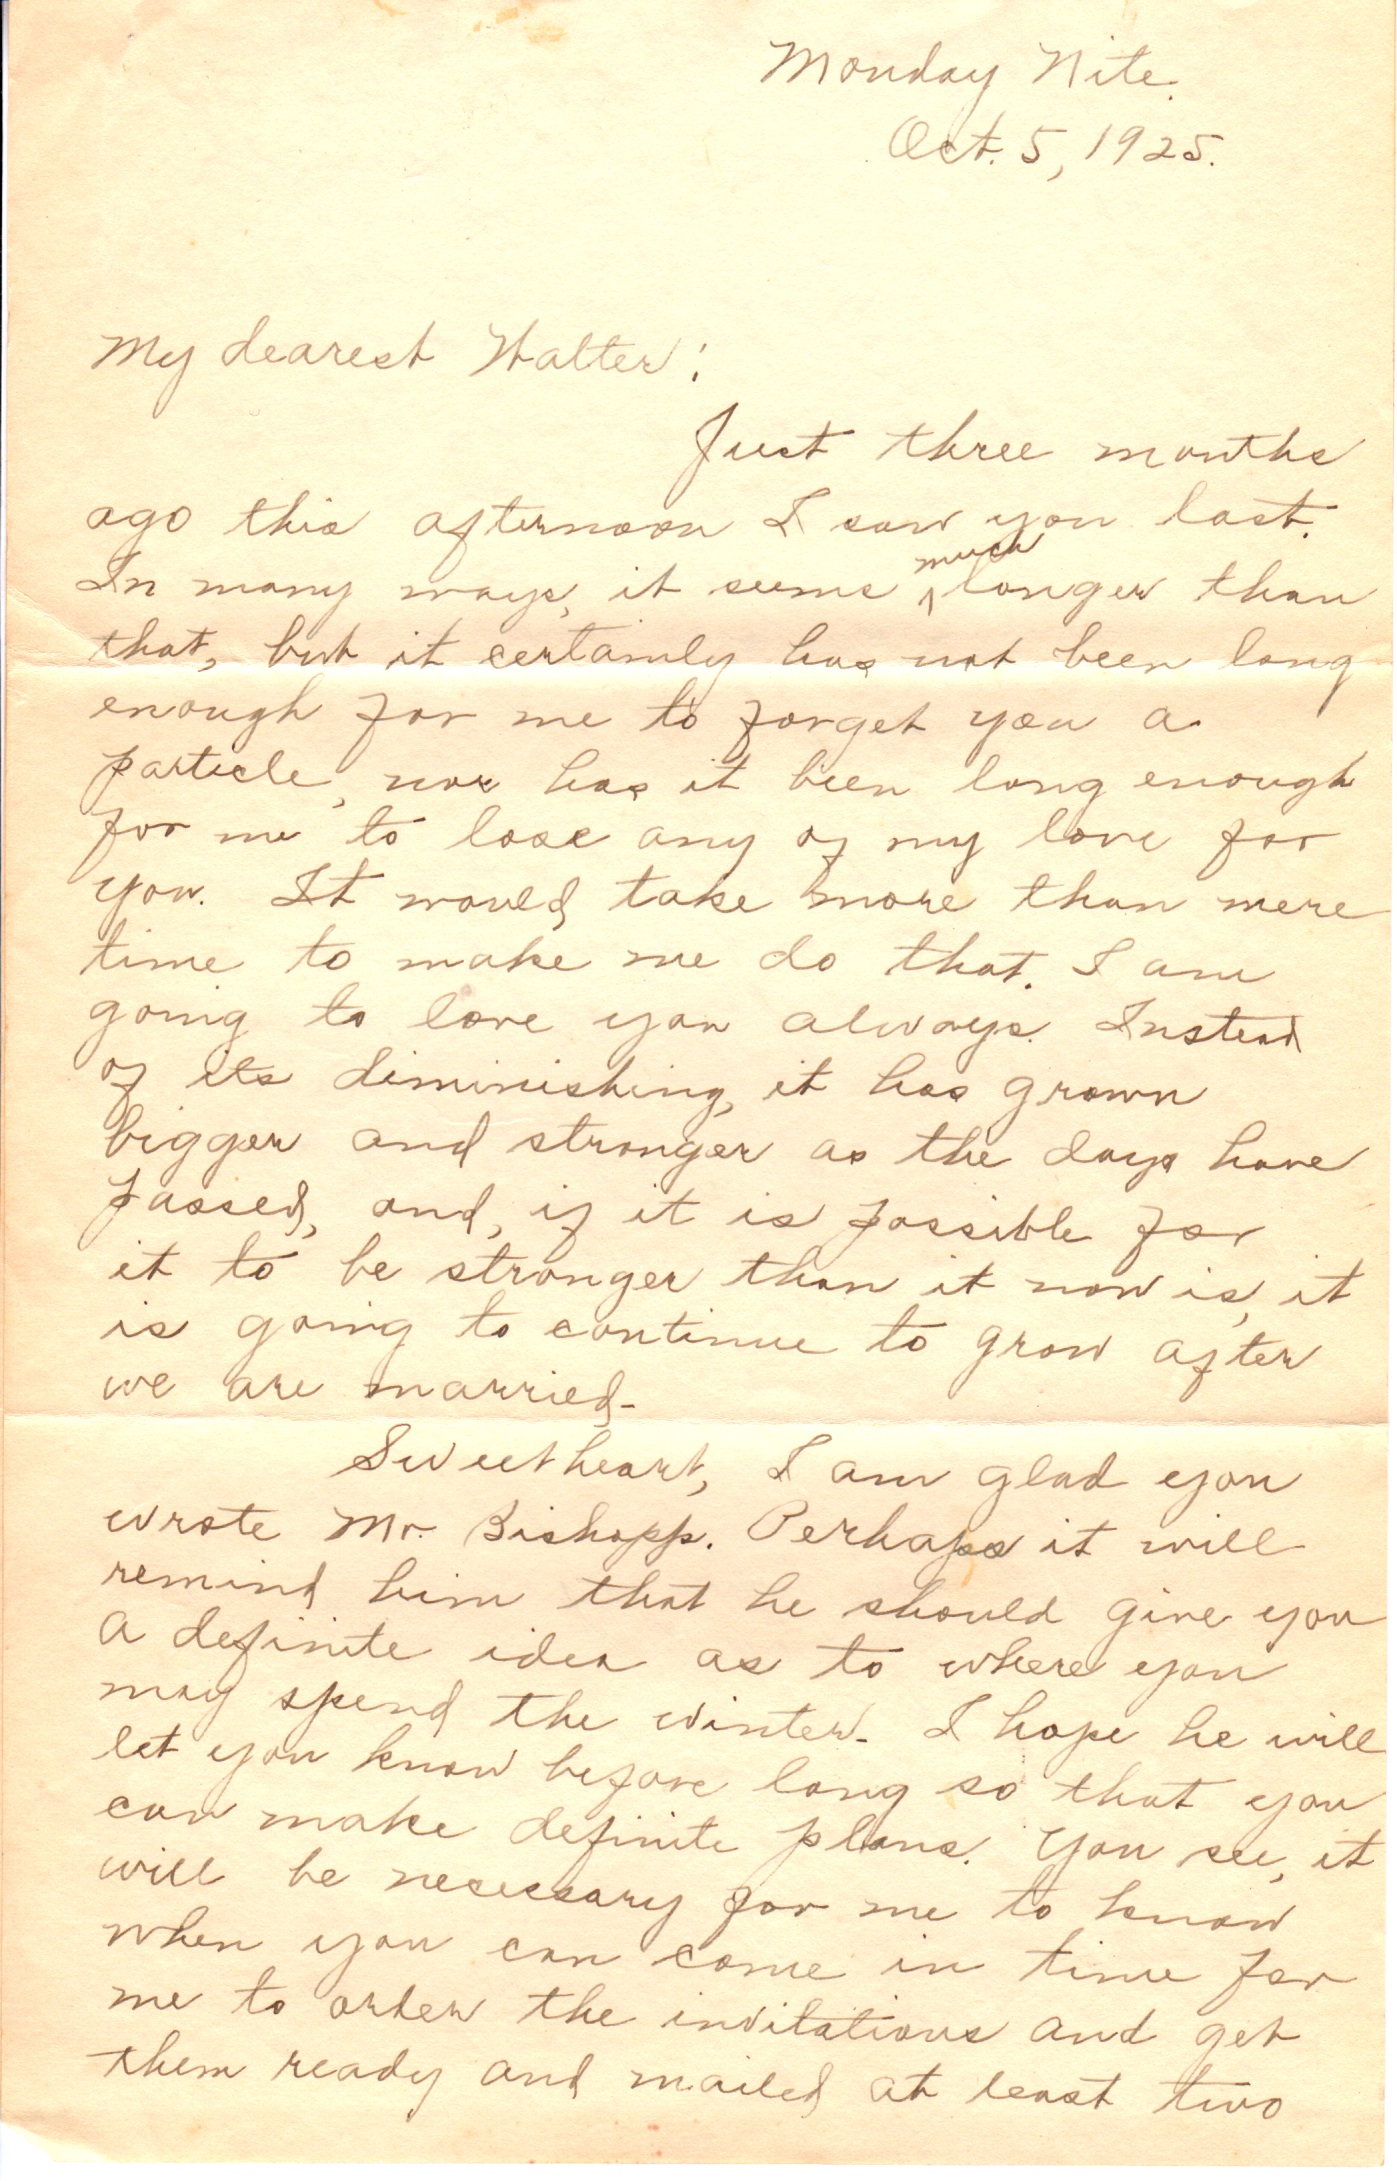 Monday Nite.
Oct. 5, 1925.
My dearest Walter:
Just three months
ago this afternoon I saw you last.
In many ways, it seems much longer than
that, but it certainly has not been long
enough for me to forget you a
particle, nor has it been long enough
for me to lose any of my love for
you. It would take more than mere
time to make me do that. I am
going to love you always. Instead
of its diminishing, it has grown
bigger and stronger as the days have
passed, and, if it is possible for
it to be stronger than it now is, it
is going to continue to grow after
we are married.
Sweetheart, I am glad you
wrote Mr. Bishopp. Perhaps it will
remind him that he should give you
a definite idea as to where you
may spend the winter. I hope he will
let you know before long so that you
can make definite plans. You see, it
will be necessary for me to know
when you can come in time for
me to order the invitations and get
them ready and mailed at least two